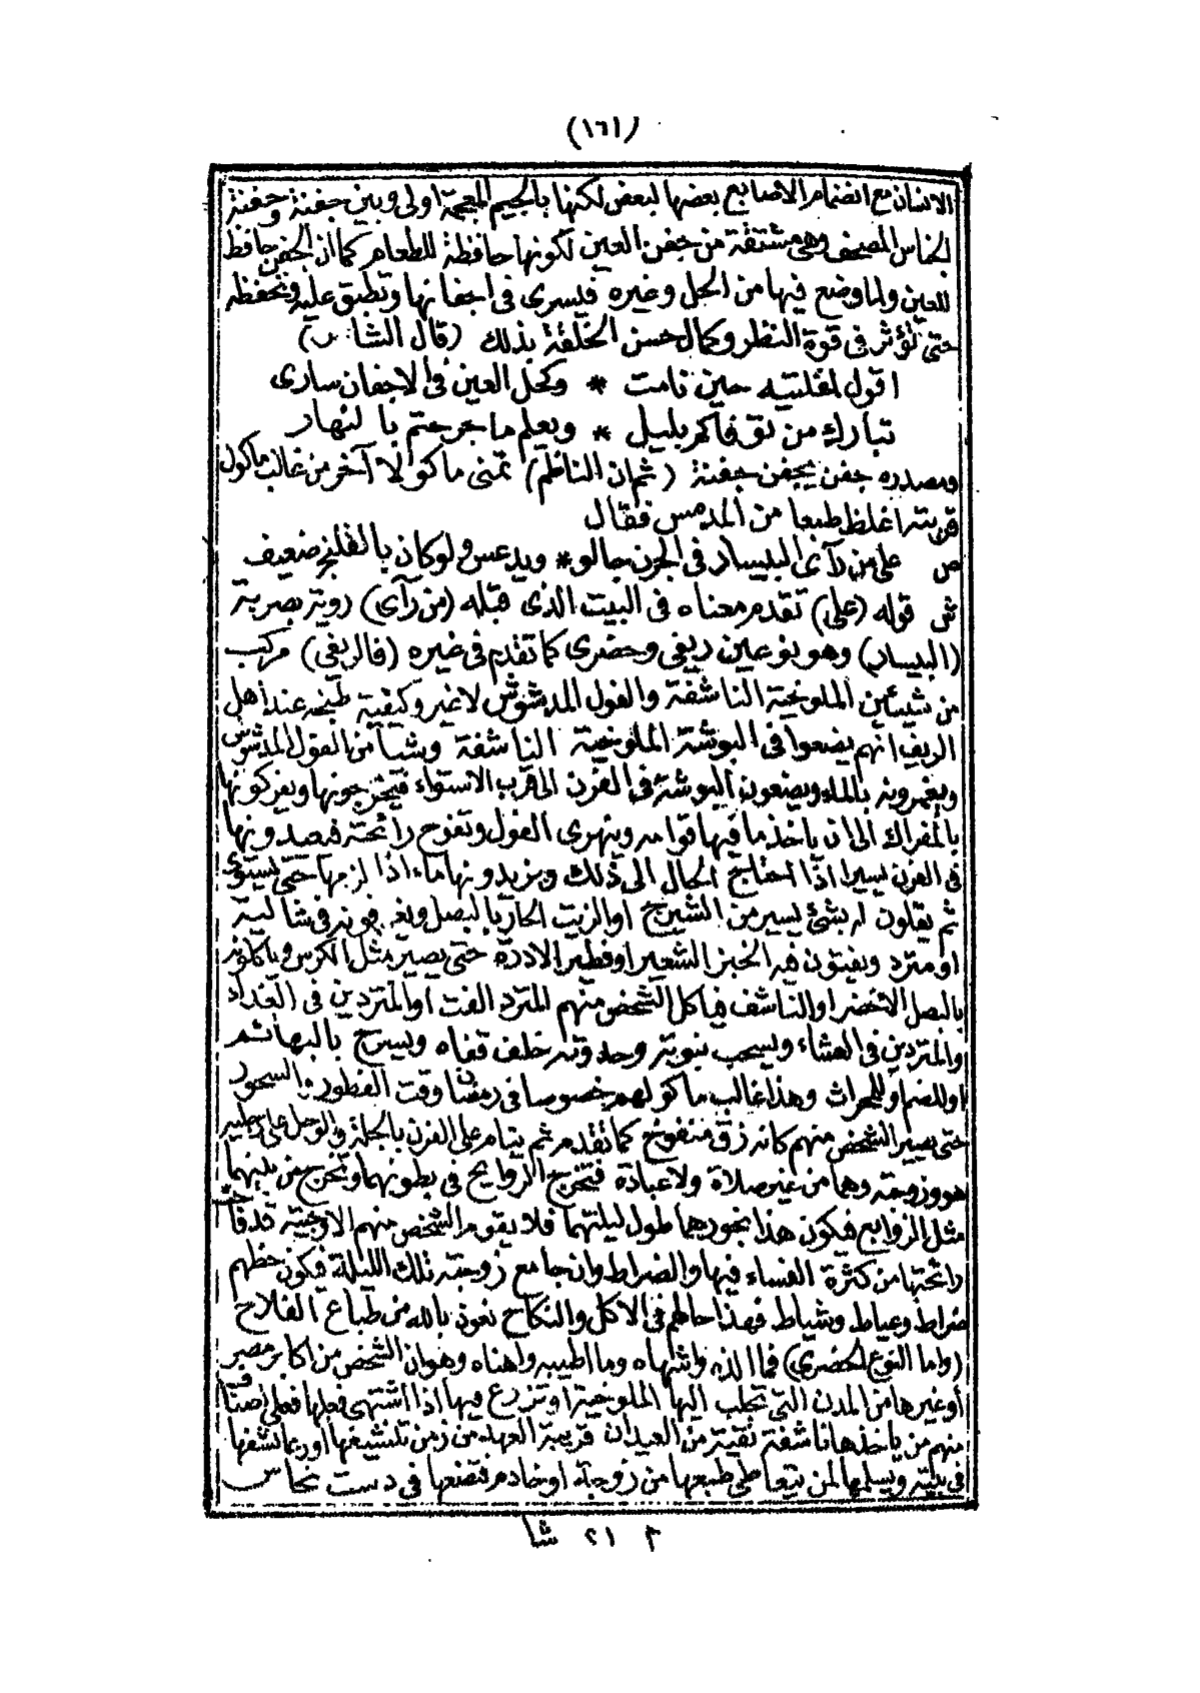 (١٦١)
الانسان مع انضمام الاصابع بعضها لبعض لكنها بالجيم المعجمة اولى وبين جفنة وحفنة
الجناس المصحف وهى مشتقة من جفن العين لكونها حافظة للطعام كما ان الجفن حافظ
للعين ولما وضع فيها من الكحل وغيره فيسرى فى اجفانها وتطبق عليه وتحفظه
حتى تؤثر فى قوة النظر وكمال حسن الخلقة بذلك (قال الشاعر)
اقول لمقلتيه حين نامت * وكحل العين فى الاجفان سارى
تبارك من توفاكم بليل * ويعلم ما جرحتم بالنهار
ومصدره جفن يجفن جفنة (ثم ان الناظم) تمنى ماكولا آخر من غالب ماكول
قريته اغلظ طبعا من المدمس فقال
ص على من رآى البيسار فى الجرن جالو * ويدعس ولو كان بالفلنج ضعيف
ش قوله (على) تقدم معناه فى البيت الذى قبله (من رآى) روية بصرية
(البيسار) وهو نوعين ريفى وحضرى كما تقدم فى غيره (فالريفى) مركب
من شيئين الملوخية الناشفة والفول المدشوش لا غير وكيفية طبخه عند أهل
الريف انهم يضعوا فى البوشة الملوخية الناشفة وشيأ من الفول المدشوش
ويغمرونه بالماء ويضعون البوشة فى الفرن الى قرب الاستواء فيخرجونها ويفركونها
بالمفراك الى ان ياخذ ما فيها قوامه ويتهرى الفول وتفوح رائحته فيصدونها
فى الفرن يسيرا اذا احتاج الحال الى ذلك ويزيدونها ماء اذا لزمها حتى يستوى
ثم يقلون له بشئ يسير من الشيرج او الزيت الحار بالبصل ويغرفونه فى شالية
او متزد ويفتون فيه الخبز الشعير او فطير الادرة حتى يصير مثل الكرس ويأكلونه
بالبصل الاخضر او الناشف فياكل الشخص منهم المترد الفت او المتردين فى الغداء
والمتردين فى العشاء ويسحب نبوته وحدوته خلف قفاه ويسرح بالبهائم
او للضم او للحراث وهذا غالب ماكولهم خصوصا فى رمضان وقت الفطور والسحور
حتى يصير الشخص منهم كانه زق منفوخ كما تقدم ثم ينام على الفرن بالجلة والوحل على
هو وزوجته وهما من غير صلاة ولا عبادة فتخرج الروايح فى بطونهما وتخرج من بينهما
مثل الزوابع فيكون هذا بخورهما طول ليلتهما فلا يقوم الشخص منهم الا وجبته قد فاحت
رائحتها من كثرة الفساء فيها والضراط وان جامع زوجته تلك الليلة فيكون حظهم
ضراط وعياط وشياط فهذا حالهم فى الاكل والنكاح نعوذ بالله من طباع الفلاح
(واما النوع الحضرى) فما الذه واشهاه وما اطيبه واهناه وهو ان الشخص من اكابر مصر
أو غيرها من المدن التى تجلب اليها الملوخية او تنزرع فيها اذا اشتهى فعلها فعلى اصناف
منهم من ياخذها ناشفة نقية من العيدان قريبة العهد من زمن تنشيفها او ربما نشفها
فى بيته ويسلمها لمن يتعاطى طبعها من زوجة او خادم فتضعها فى دست نحاس
م ٢١ شا